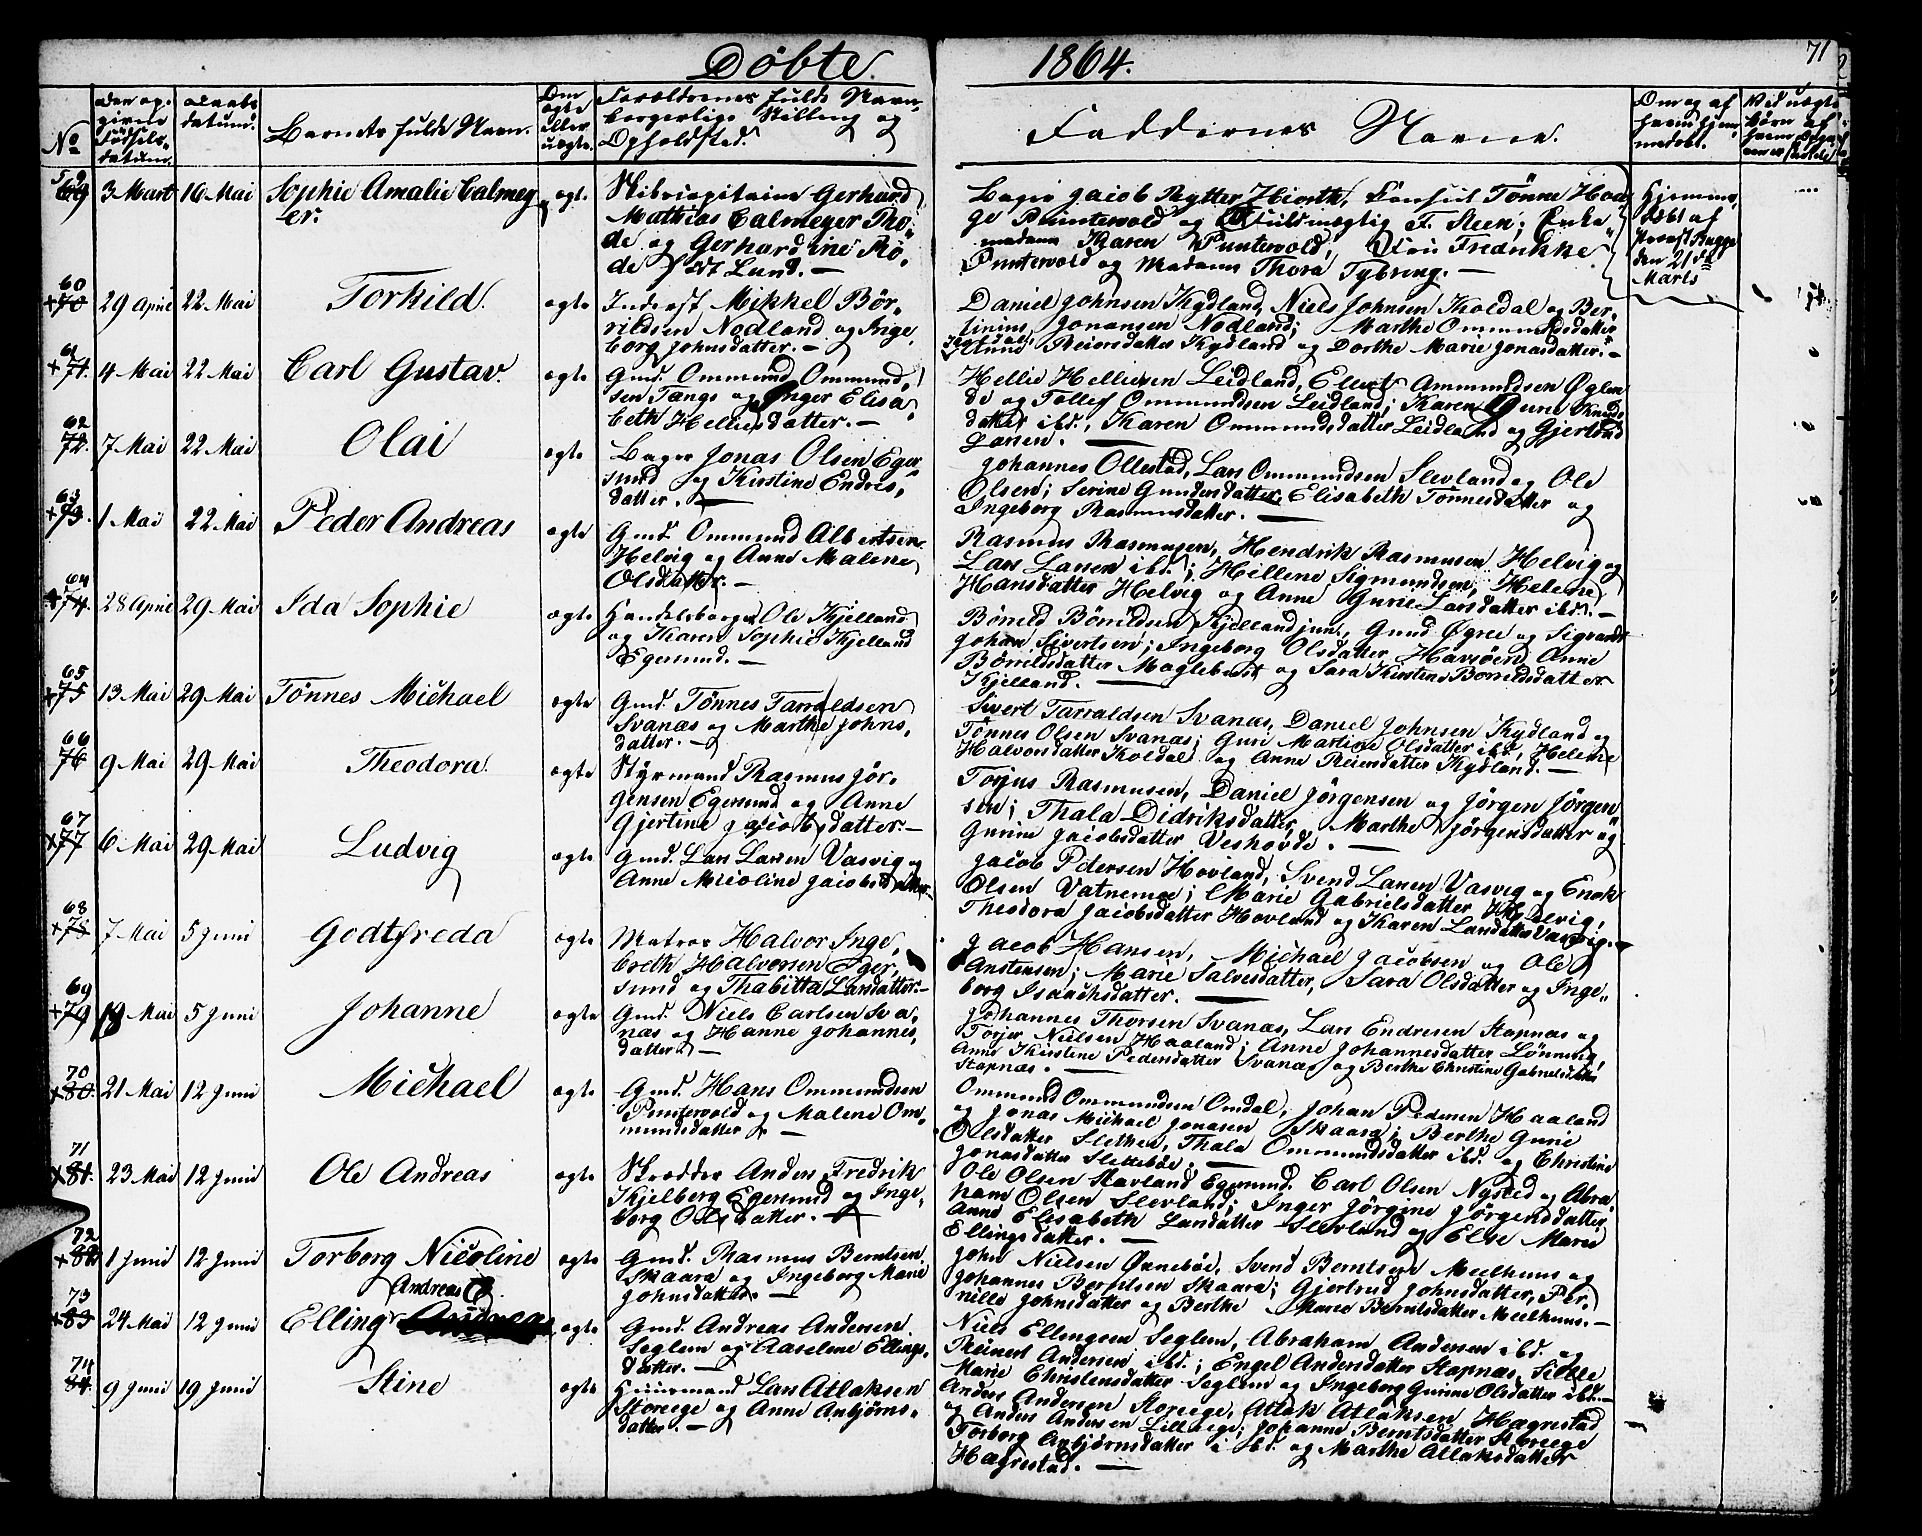 Døbte 1864.
71
No
Den op-
givne
Fødsels-
datum.
Daabs
datum.
Barnets fulde Navn.
Om
ægte
eller
uægte.
Forældrenes fulde Navn,
borgerlige Stilling og
Opholdsted.
Faddernes Navne.
Om og af
hvem hjem-
medøbt.
Ved uægte
Børn af
59
69 3 Mart 16 Mai Sophie Amalie Calmey
er.
ægte.
Skibscapitaine Gerhard
Mathias Calmeyer Tho-
de og Gerhardine Rø-
de Lund. —
Bager Jacob Rytter Hiorth, Consul Tönne Hou
ge Puntervold og Fuldmægtig F. Steen; Enke-
madame Karen Puntervold, Fredrikke
Puntervold og Madame Thora Tybring. —
Hjemme-
døbt af
Provst Bugge
den 21de
Marts
60
+70 29 April 22 Mai Torkild. ægte
Inderst Mikkel Bör-
rildsen Nodland og Inge
borg Johnsdatter. —
Daniel Johnsen Kydland, Niels Johnsen Koldal og Ber-
tinius Jonansen Nodland; Marthe Ommundsdatter
Koldal, Anne Reiersdatter Kydland og Dorthe Marie Jonasdatter. —
61
+71. 4 Mai 22 Mai Carl Gustav. ægte
Gmd. Ommund Ommund-
sen Tængs og Inger Elisa-
beth Helliesdatter. —
Hellie Helliesen Leidland, Ellert Ammundsen Øglen
de og Tollef Ommundsen Leidland; Karen Gurie Knuds
datter ibd., Karen Ommundsdatter Leidland og Gjertrud
Larsen. —
62
72. 7 Mai 22 Mai Olai ægte
Bager Jonas Olsen Eger-
sund og Kirstine Endres-
datter. —
Johannes Ollestad, Lars Ommundsen Slevland og Ole
Olsen; Serine Gundersdatter, Elisabeth Tönnesdatter og
Ingeborg Rasmusdatter. —
63
+73. 1 Mai 22 Mai Peder Andreas ægte
Gmd. Ommund Albertsen
Helvig og Anne Malene
Olsdatter. —
Rasmus Rasmusen, Hendrik Rasmusen Helvig og
Lars Larsen ibd.; Hellene Sigmundsen, Helene
Hansdatter Helvig og Anne Gurie Larsdatter ibd. —
64
+74. 28 April 29 Mai Ida Sophie ægte
Handelsborger Ole Kjelland
og Karen Sophie Kjelland
Egersund. —
Börrild Börrildsen Kjelland jun., Gund Øgree og Sigvandt
Johan Sivertsen; Ingeborg Olsdatter Havsöen, Anne
Börrildsdatter Maglebust og Sara Kirstine Borrildsdatter
Kjelland. —
65
+75 13 Mai 29 Mai Tönnes Michael ægte
Gmd. Tönnes Tarraldsen
Svanæs og Marthe Johns-
datter. —
Sivert Tarraldsen Svanæs, Daniel Johnsen Kydland og
Tönnes Olsen Svanæs; Guri Martine Olsdatter ibd., Helene
Halvorsdatter Koldal og Anne Reiersdatter Kydland. —
66
76 9 Mai 29 Mai Theodora. ægte
Styrmand Rasmus Jör-
gensen Egersund og Anne
Gjertine Jacobsdatter. —
Torjus Rasmusen, Daniel Jörgensen og Jörgen Jörgen-
sen; Thala Didriksdatter, Marthe Jörgensdatter og
Gurine Jacobsdatter Veshovde. —
67
+77 6 Mai 29 Mai Ludvig ægte
Gmd. Lars Larsen Vasvig og
Anne Nicoline Jacobsdatter.
Jacob Petersen Hovland, Svend Larsen Vasvig og Enok
Olsen Vatnemoe; Marie Gabrielsdatter Helvig,
Theodora Jacobsdatter Hovland og Karen Larsdatter Vasvig. —
68
+78 7 Mai 5 Juni Godtfreda ægte
Matros Halvor Inge-
breth Halvorsen Eger-
sund og Thabitta Larsdatter. —
Jacob Hansen, Michael Jacobsen og Ole
Anstensen; Marie Salvesdatter, Sara Olsdatter og Inge-
borg Isaachsdatter. —
69
+79 19 Mai 5 Juni Johanne ægte
Gmd. Niels Carlsen Sva-
næs og Hanne Johannes-
datter. —
Johannes Thorsen Svanæs, Lars Endresen Stapnæs og
Torjer Nielsen Haaland; Anne Johannesdatter Lönning,
Anne Kirstine Pedersdatter Svanæs og Berthe Christine Gabrielsdatter
Stapnæs. —
70
+80. 21 Mai 12 Juni Michael ægte
Gmd. Hans Ommundsen
Puntervold og Malene Om-
mundsdatter. —
Ommund Ommundsen Omdal, Johan Pedersen Haaland
og Jonas Michael Jonasen Skaara; Berthe Gurie
Olsdatter Slethen, Thala Ommundsdatter ibd. og Christine
Jonasdatter Slettebøe. —
71
+81. 23 Mai 12 Juni Ole Andreas ægte
Skrædder Anders Fredrik
Kjelberg Egersund og Inge-
borg Olsdatter. —
Ole Olsen Slavland Egersund, Carl Olsen Nysted og Abra
ham Olsen Slevland; Inger Jörgine Jörgensdatter,
Anne Elisabeth Larsdatter Slevland og Else Marie
Ellingsdatter. —
72
+82 1 Juni 12 Juni Torborg Nicoline ægte
Gmd. Rasmus Berntsen
Skaara og Ingeborg Marie
Johnsdatter. —
John Nielsen Ørnebøe, Svend Berntsen Meelhuus og
Johannes Berntsen Skaara; Gjertrud Johnsdatter, Per-
nille Johnsdatter og Berthe Marie Berntsdatter Meelhuus. —
73
+83 24 Mai 12 Juni Elling Andreas
Andreas ægte
Gmd. Andreas Andersen
Seglem og Aaselene Ellings-
datter. —
Niels Ellingsen Seglem, Abraham Andersen ibd. og
Reinert Andersen ibd.; Engel Andersdatter Stapnæs, Sille
Marie Christensdatter Seglem og Ingeborg Gurine Olsdatter ibd. —
74
84. 9 Juni 19 Juni Stine ægte
Huusmand Lars Atlaksen
Storeege og Anne Anbjörns-
datter. —
Anders Andersen Storeege, Atlak Atlaksen Hægrestad
og Anders Andersen Lilleege; Johanne Berntsdatter Storeege
Torborg Anbjörnsdatter ibd. og Marthe Atlaksdatter
Hægrestad. —